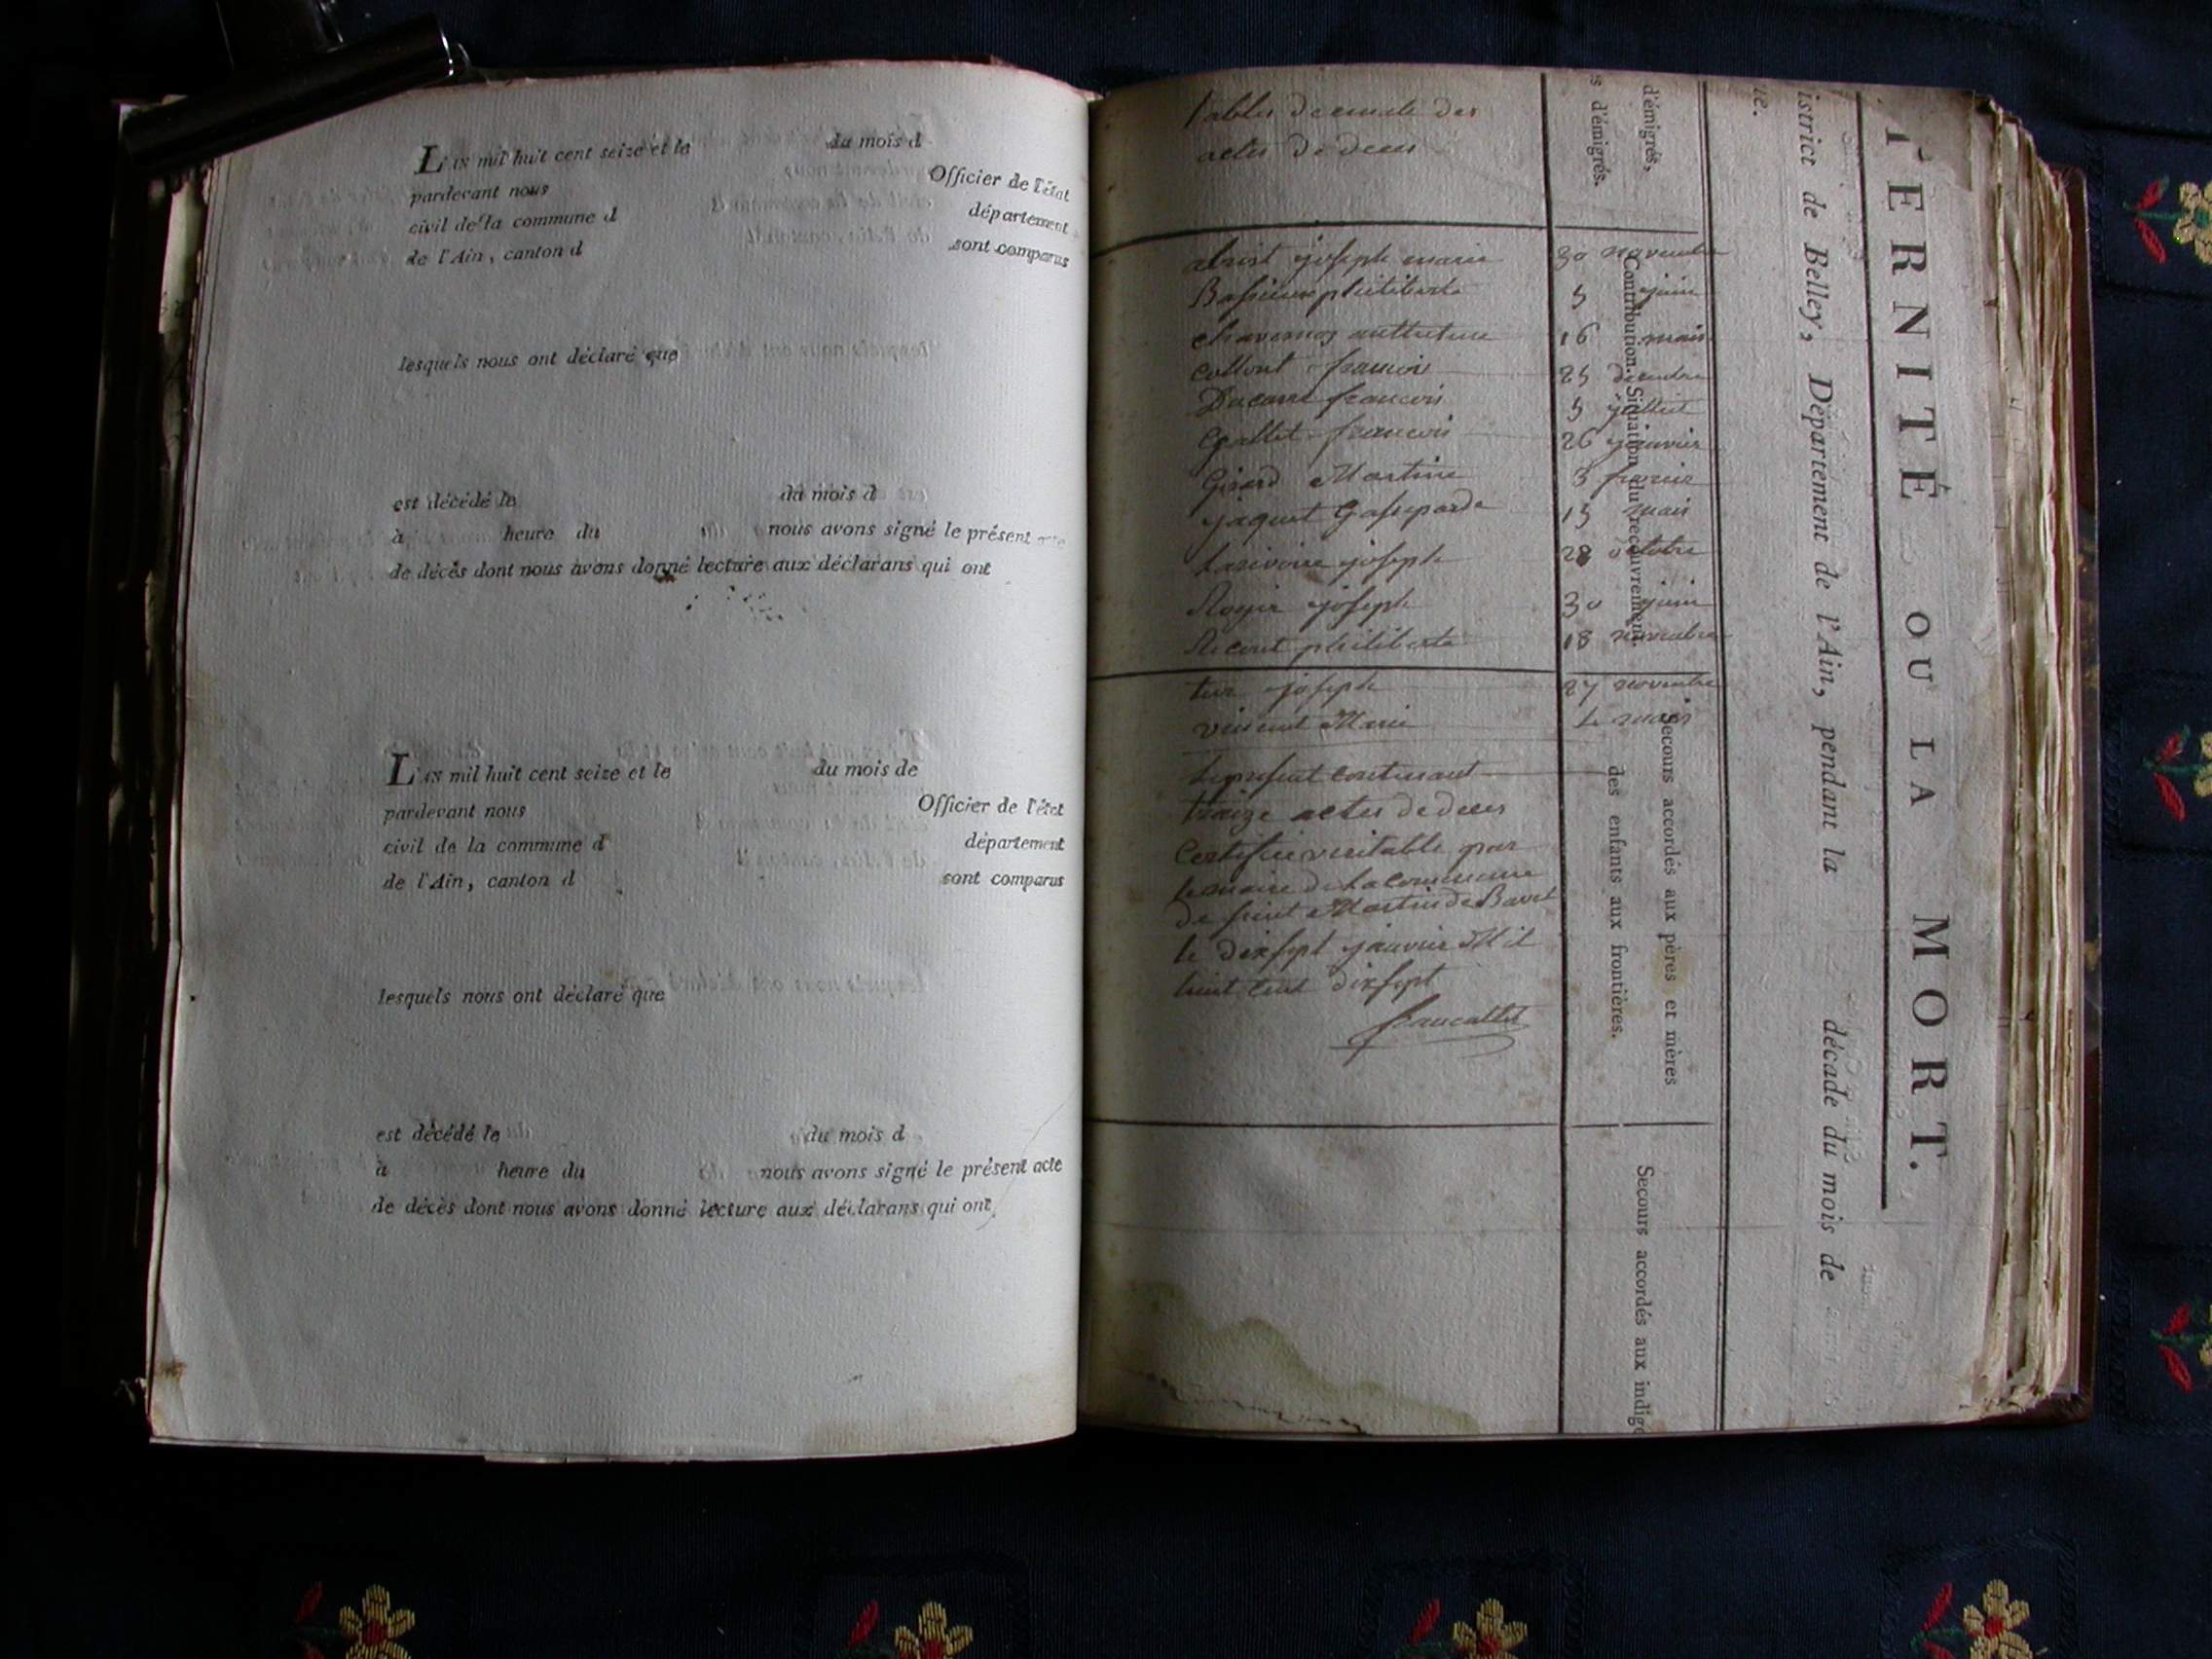 L'AN mil huit cent seize et le du mois d
pardevant nous Officier de l'état
civil de la commune d département
de l'Ain, canton d sont comparus
lesquels nous ont déclaré que
est décédé le du mois d
à heure du nous avons signé le présent acte
de décès dont nous avons donné lecture aux déclarans qui ont
L'AN mil huit cent seize et le du mois de
pardevant nous Officier de l'état
civil de la commune d département
de l'Ain, canton d sont comparus
lesquels nous ont déclaré que
est décédé le du mois d
à heure du nous avons signé le présent acte
de décès dont nous avons donné lecture aux déclarans qui ont
actes de deces
joseph marie 30 novembre
philiberte 5 juin
16 mars
Collont francois 25 decembre
Ducarre francois 5 juillet
francois 26 janvier
Girard Martine 3 fevrier
jaquet Gasparde 15 mars
Larivoire joseph 28 octobre
Rogier joseph 30 juin
philiberte 18 novembre
joseph 27 novembre
vincent Marie 4 mars
Le present contenant
traize actes de deces
Certifié veritable par
le maire de la commune
de saint Martin de Bavel
le dix sept janvier Mil
huit cent dix sept
francallet
TERNITÉ OU LA MORT.
istrict de Belley, Département de l'Ain, pendant la décade du mois de
d'émigrés,
s d'émigrés.
Contribution. Situation du recouvrement.
Secours accordés aux pères et mères
des enfants aux frontières.
Secours accordés aux indig